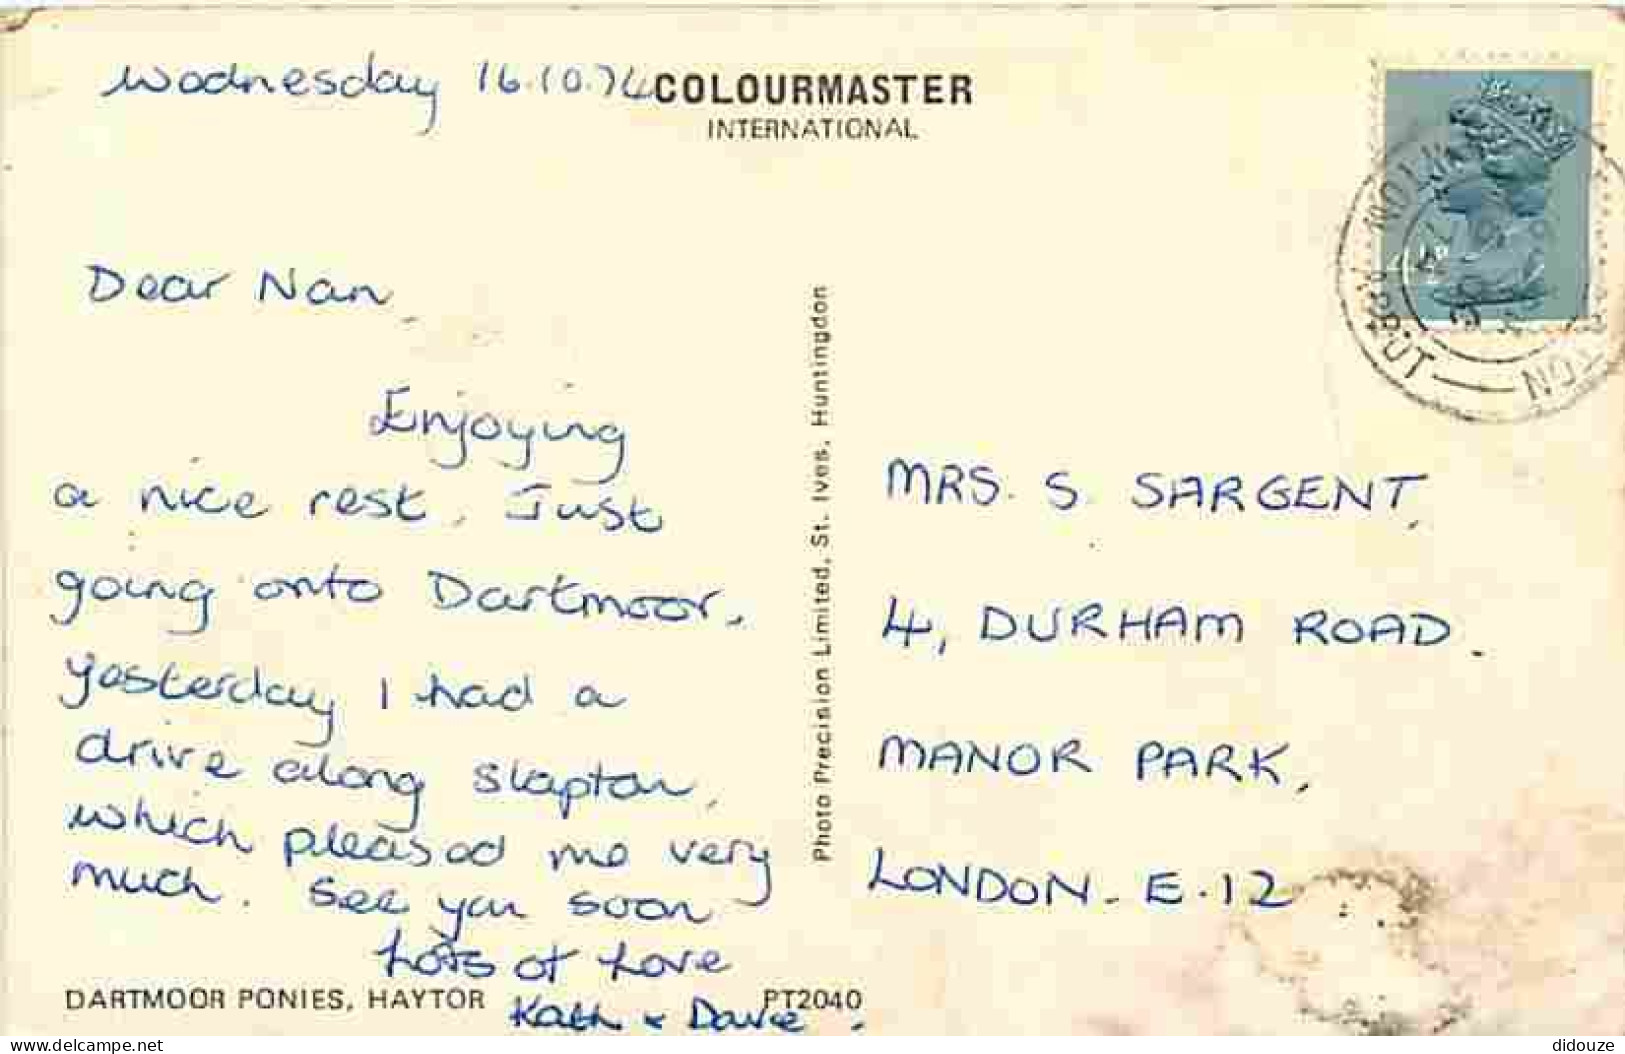 Wednesday 16.10.74
COLOURMASTER
INTERNATIONAL
Dear Nan,
Enjoying
a nice rest. Just
going onto Dartmoor,
yesterday I had a
drive along Slapton,
which pleased me very
much. See you soon
Lots of Love
Kath & Dave.
DARTMOOR PONIES, HAYTOR
PT2040
Photo Precision Limited, St. Ives, Huntingdon
MRS. S. SARGENT,
4, DURHAM ROAD.
MANOR PARK,
LONDON. E.12
delcampe.net
didouze